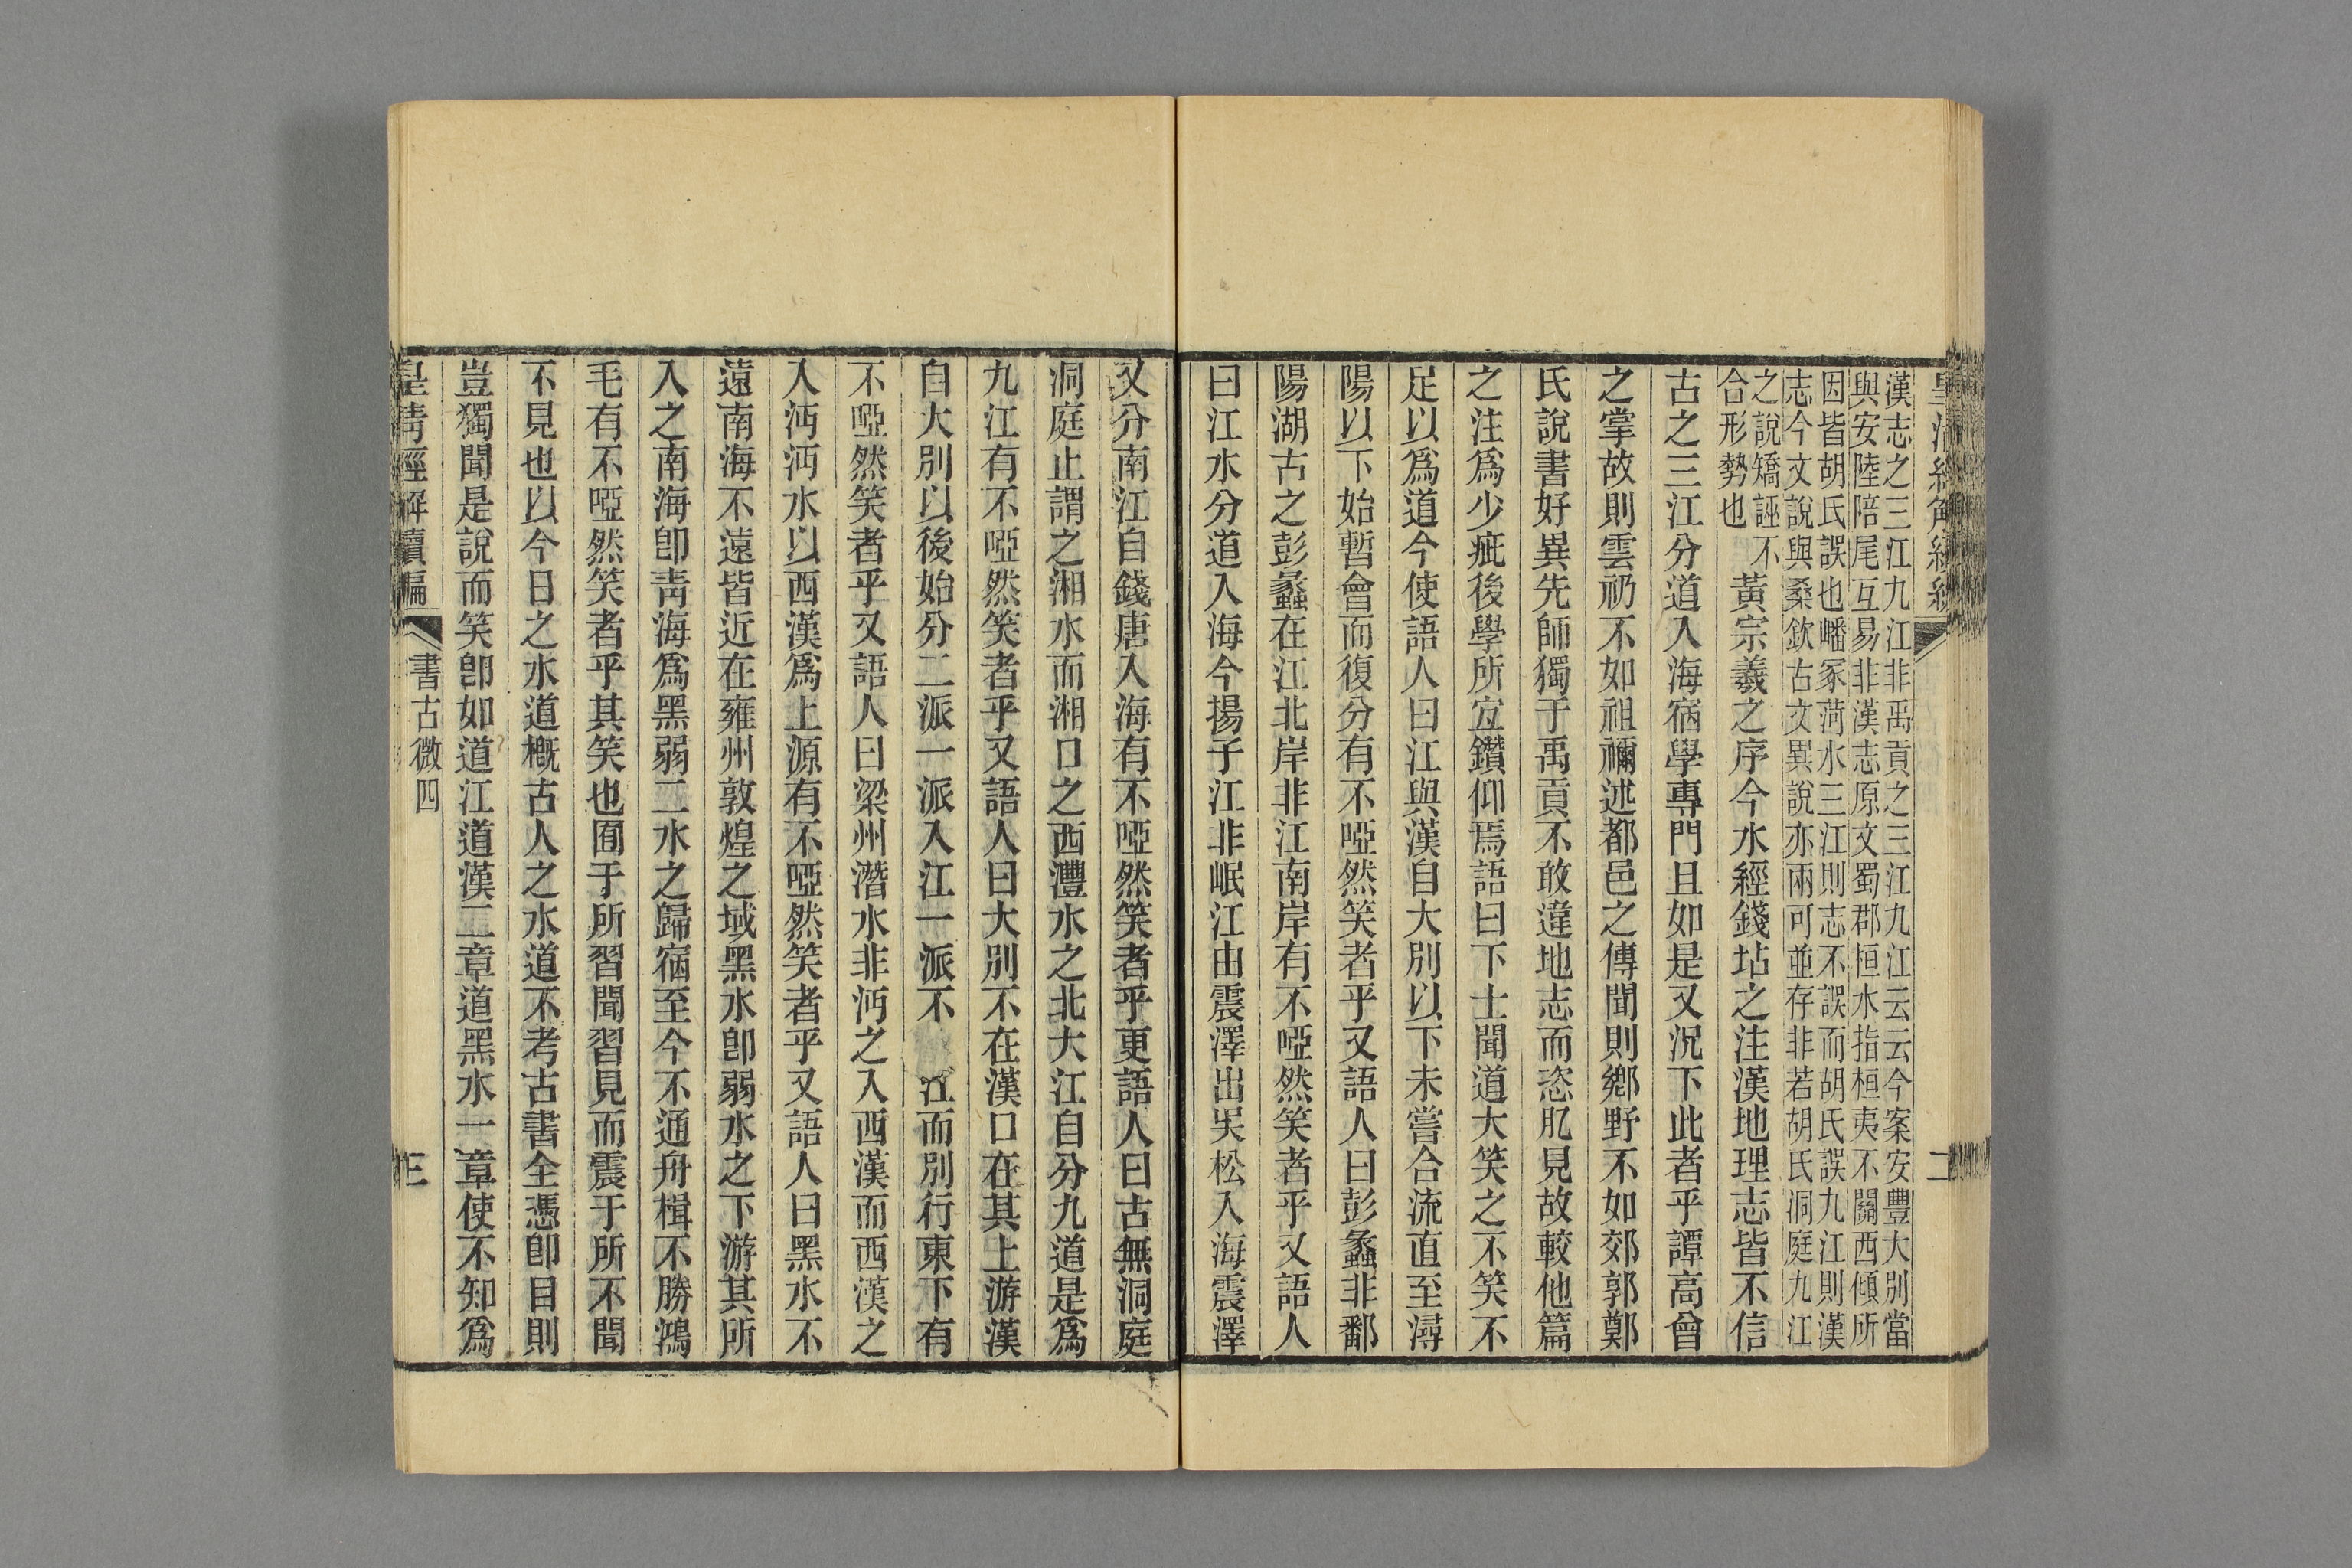 漢志之三江九江非禹貢之三江九江云云今案安豐大別當
與安陸陪尾互易非漢志原文蜀郡桓水指桓夷不關西傾所
因皆胡氏誤也嶓冢菏水三江則志不誤而胡氏誤九江則漢
志今文說與桑欽古文異說亦兩可並存非若胡氏洞庭九江
之說矯誣不
合形勢也
黃宗羲之序今水經錢坫之注漢地理志皆不信
古之三江分道入海宿學專門且如是又況下此者乎譚高曾
之掌故則雲礽不如祖禰述都邑之傳聞則鄉野不如郊郭鄭
氏說書好異先師獨于禹貢不敢違地志而恣肊見故較他篇
之注爲少疵後學所宜鑽仰焉語曰下士聞道大笑之不笑不
足以爲道今使語人曰江與漢自大別以下未嘗合流直至潯
陽以下始暫會而復分有不啞然笑者乎又語人曰彭蠡非鄱
陽湖古之彭蠡在江北岸非江南岸有不啞然笑者乎又語人
曰江水分道入海今揚子江非岷江由震澤出吳松入海震澤
又分南江自錢唐入海有不啞然笑者乎更語人曰古無洞庭
洞庭止謂之湘水而湘口之西灃水之北大江自分九道是爲
九江有不啞然笑者乎又語人曰大別不在漢口在其上游漢
自大別以後始分二派一派入江一派不江而別行東下有
不啞然笑者乎又語人曰梁州潛水非沔之入西漢而西漢之
入沔沔水以西漢爲上源有不啞然笑者乎又語人曰黑水不
遠南海不遠皆近在雍州敦煌之域黑水卽弱水之下游其所
入之南海卽靑海爲黑弱二水之歸宿至今不通舟楫不勝鴻
毛有不啞然笑者乎其笑也囿于所習聞習見而震于所不聞
不見也以今日之水道槪古人之水道不考古書全憑卽目則
豈獨聞是說而笑卽如道江道漢二章道黑水一章使不知爲
皇清經解續編
書古微四
三